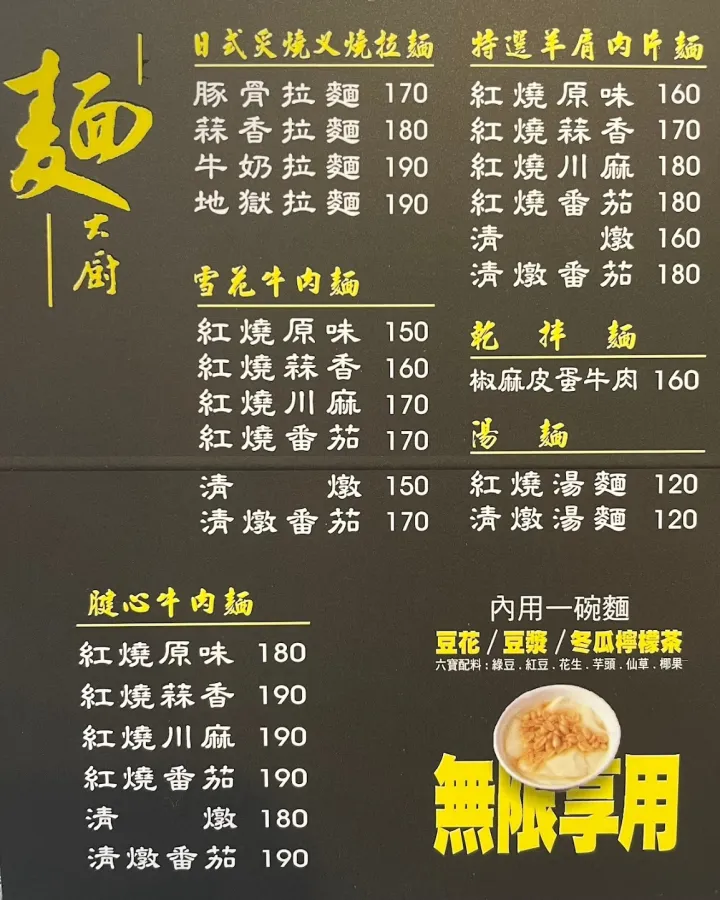 麵大廚
日式炙燒叉燒拉麵
豚骨拉麵 170
蒜香拉麵 180
牛奶拉麵 190
地獄拉麵 190
雪花牛肉麵
紅燒原味 150
紅燒蒜香 160
紅燒川麻 170
紅燒番茄 170
清燉 150
清燉番茄 170
腱心牛肉麵
紅燒原味 180
紅燒蒜香 190
紅燒川麻 190
紅燒番茄 190
清燉 180
清燉番茄 190
特選羊肩肉片麵
紅燒原味 160
紅燒蒜香 170
紅燒川麻 180
紅燒番茄 180
清燉 160
清燉番茄 180
乾拌麵
椒麻皮蛋牛肉 160
湯麵
紅燒湯麵 120
清燉湯麵 120
內用一碗麵
豆花/豆漿/冬瓜檸檬茶
六寶配料:綠豆.紅豆.花生.芋頭.仙草.椰果
無限享用